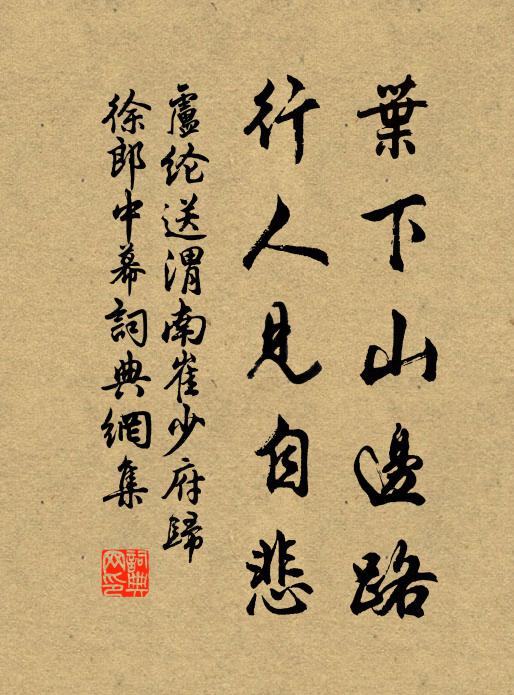 葉下山邊路
行人見自悲
盧纶送渭南崔少府歸
徐郎中幕詞典網集
詞典
网印